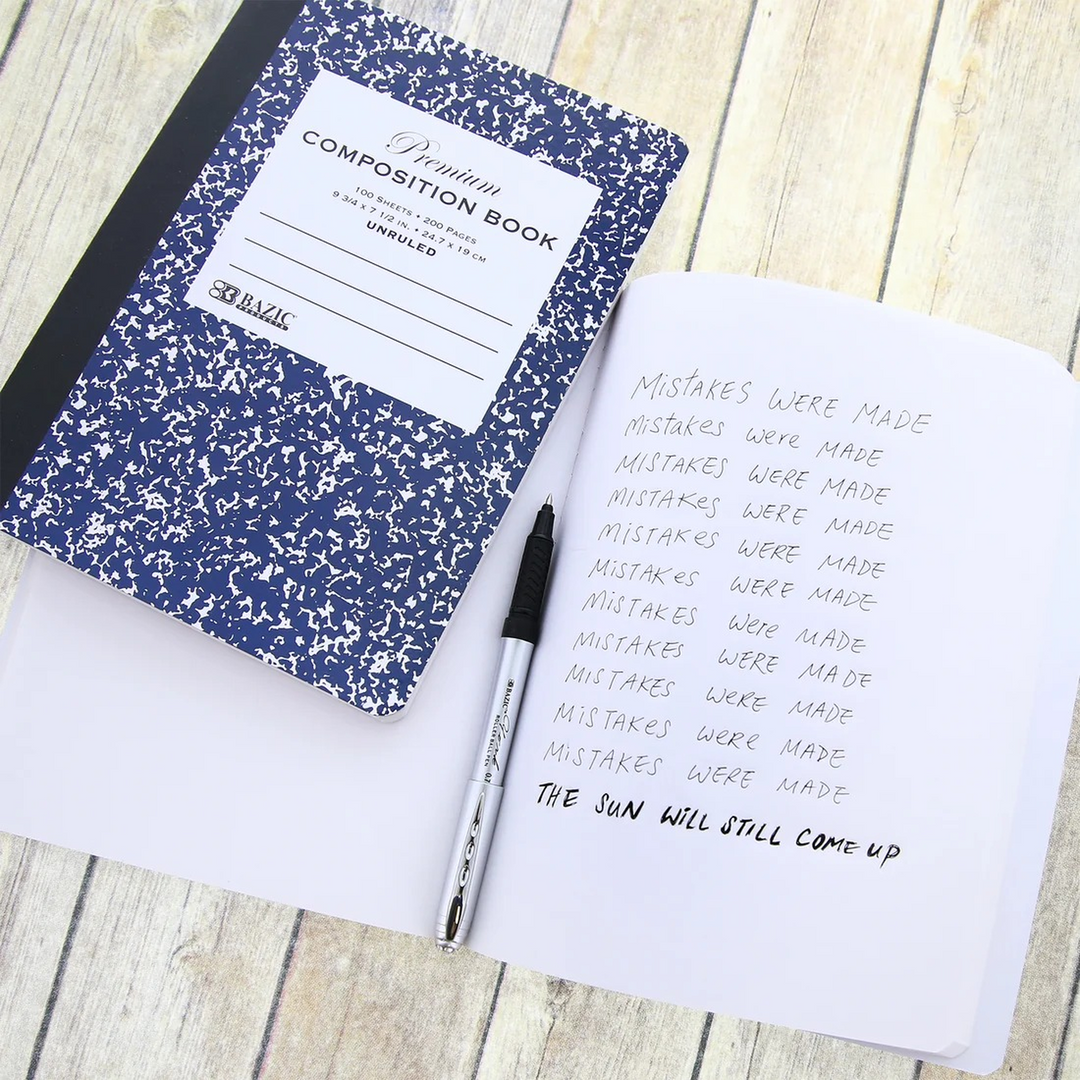 Premium
COMPOSITION BOOK
100 SHEETS • 200 PAGES
9 3/4 X 7 1/2 IN. • 24.7 X 19 CM
UNRULED
BAZIC
PRODUCTS
MiSTAKES WERE MADE
Mistakes were MADE
MISTAKES WERE MADE
MISTAKes WERE MADE
MISTAKes WERE MADE
MiSTAKes WERE MADE
MiSTAKES Were MADE
MISTAKES WERE MADE
MISTAKES WERE MADE
MiSTAKes were MADE
MiSTAKES WERE MADE
THE SUN WiLL STiLL COME UP
BAZIC
ROLLER BALL PEN 0.7